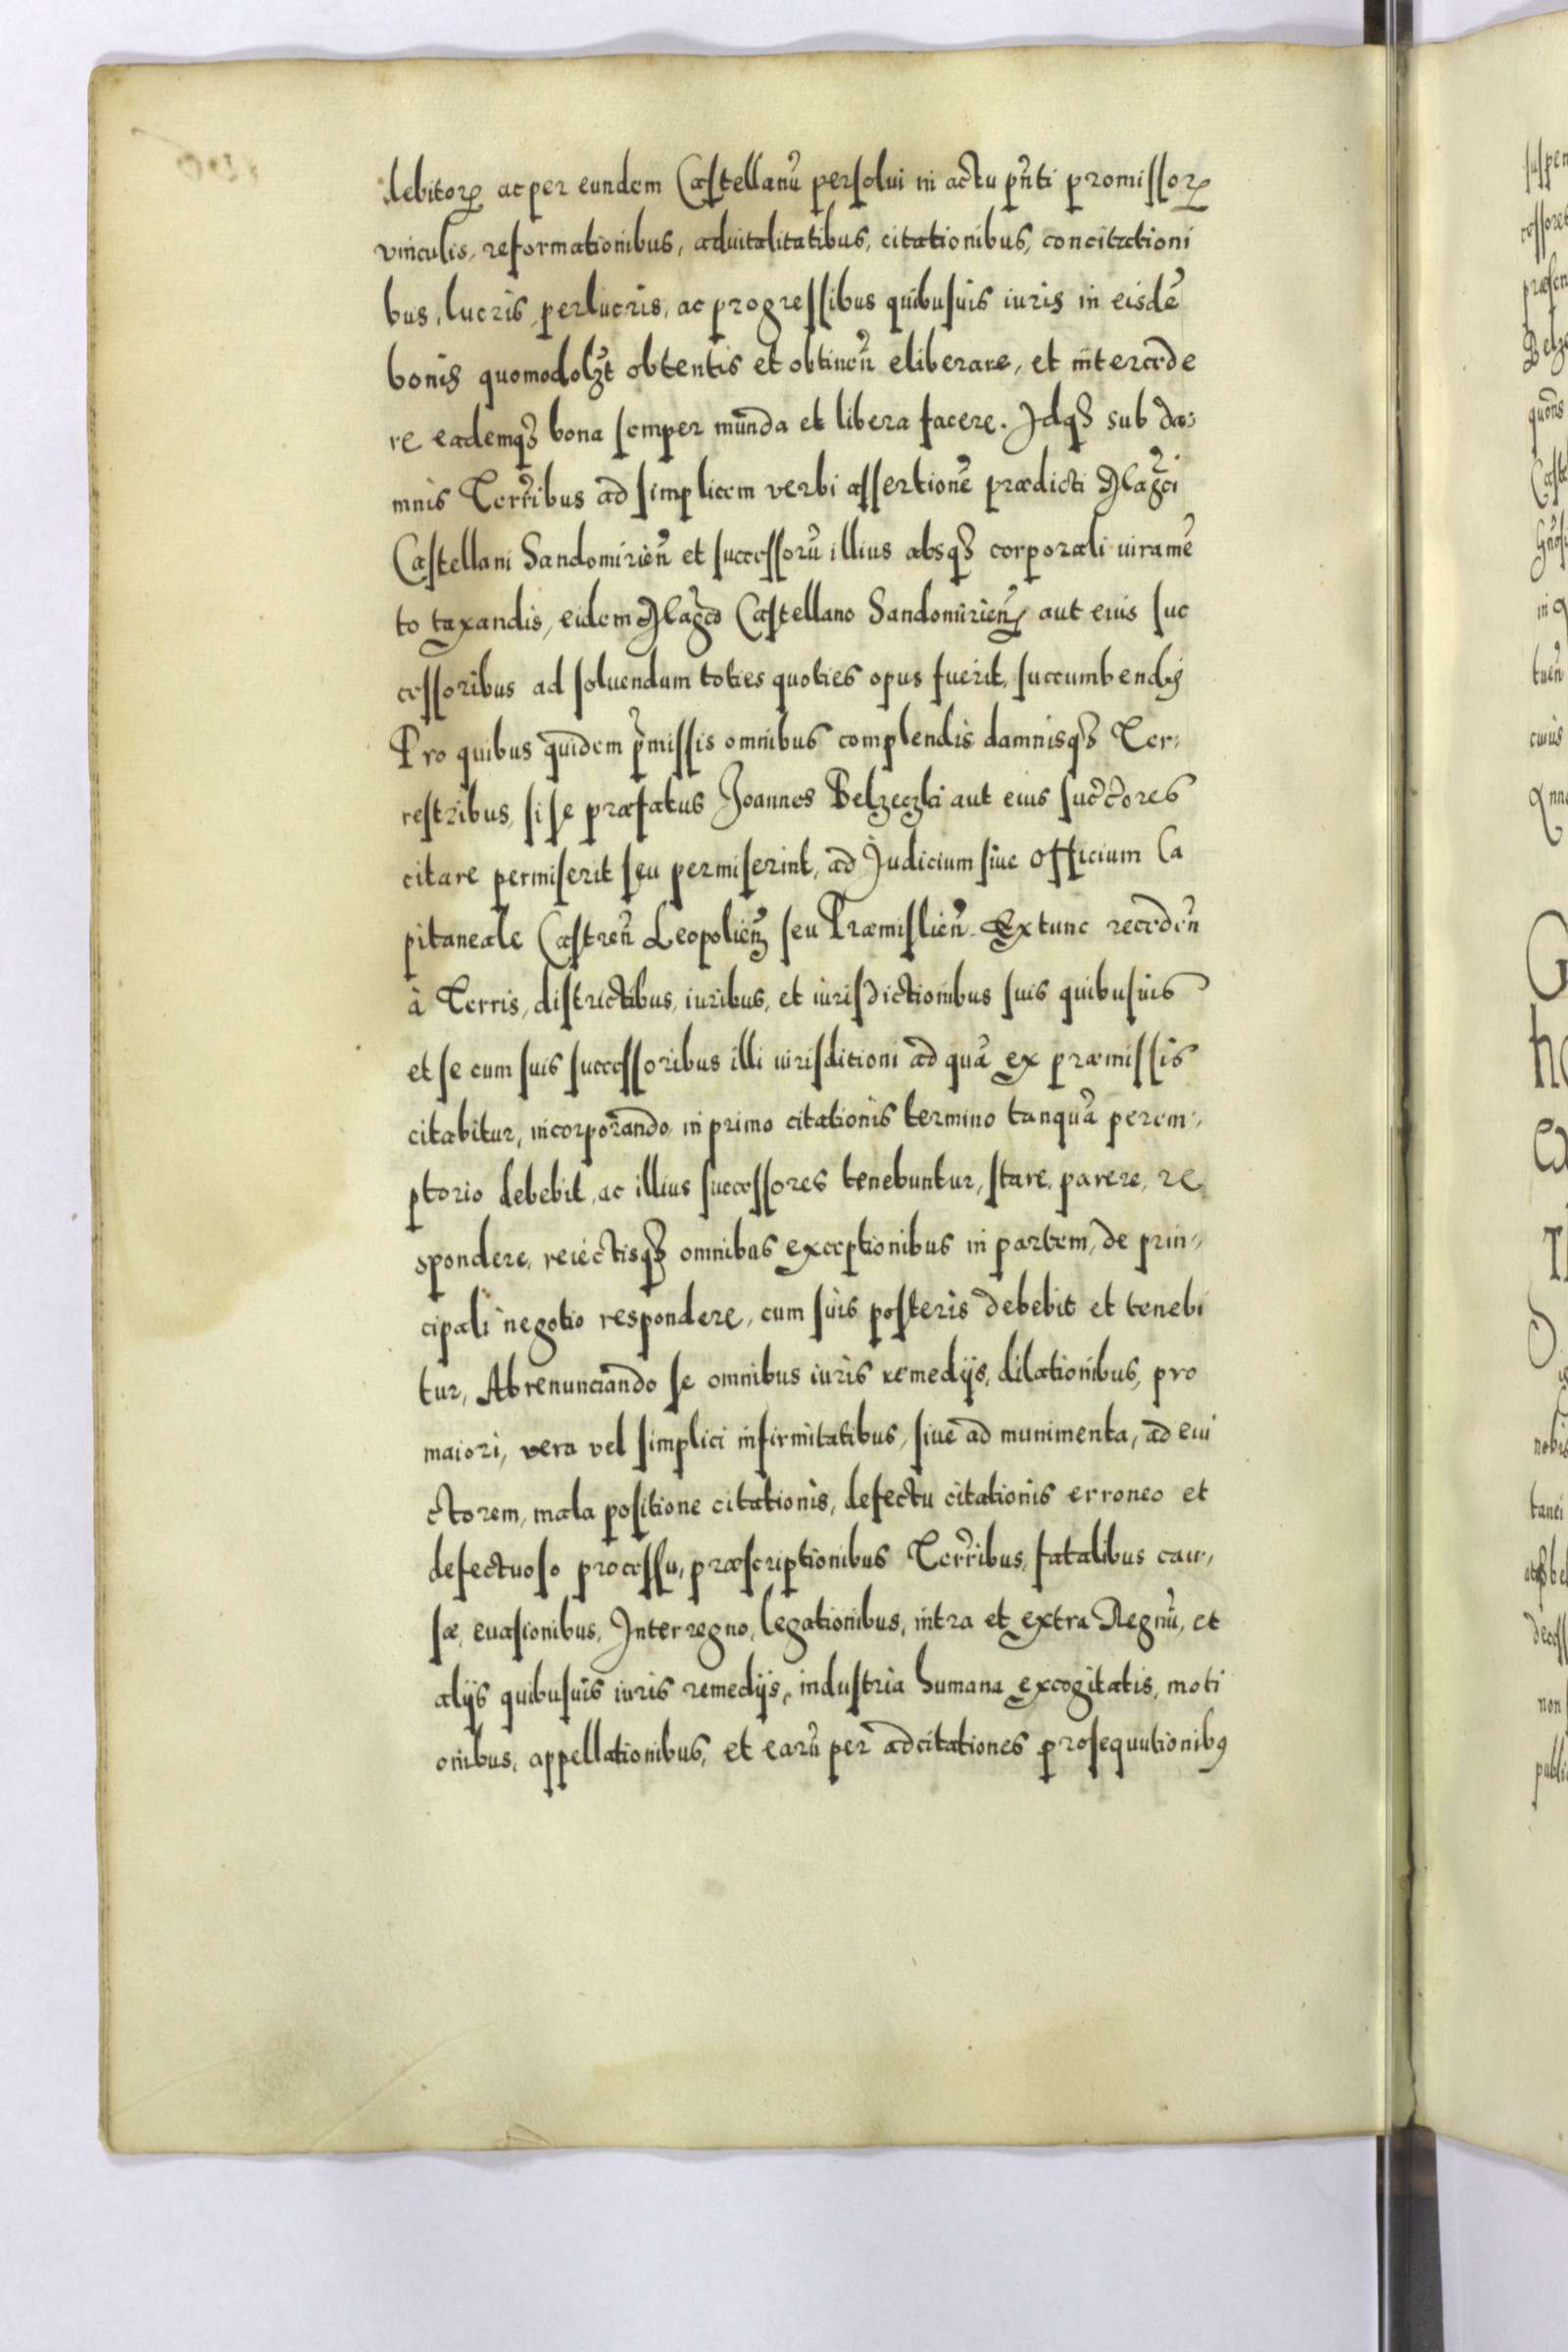 debitorꝝ ac per eundem Castellanũ persolui in actu pñti promissorꝝ
vinculis, reformationibus, aduitalitatibus, citationibus, concitationi
bus, lucris, perlucris, ac progressibus quibusuis iuris in eisdẽ
bonis quomodolꝫt obtentis et obtineñ eliberare, et intercede
re eademqꝫ bona semper munda et libera facere. Idqꝫ sub da:
mnis Terr̃ibus ad simplicem verbi assertionẽ prædicti Mag̃ci
Castellani Sandomirieñ et successorũ illius absqꝫ corporali iuramẽ
to taxandis, eidem Mag̃co Castellano Sandomirieñ aut eius suc
cessoribus ad soluendum toties quoties opus fuerit, succumbendis
Pro quibus quidem p̃missis omnibus complendis damnisqꝫ Ter:
restribus, si se præfatus Joannes Belzeczki aut eius succ̃ores
citare permiserit seu permiserint, ad Judicium siue Officium Ca
pitaneale Castreñ Leopolieñ seu Præmislieñ. Extunc recedeñ
à Terris, districtibus, iuribus, et iurisdictionibus suis quibusuis
et se cum suis successoribus illi iurisditioni ad quã ex præmissis
citabitur, incorporando in primo citationis termino tanquã perem:
ptorio debebit, ac illius successores tenebuntur, stare, parere, re
spondere, reiectisqꝫ omnibus exceptionibus in partem, de prin:
cipali negotio respondere, cum suis posteris debebit et tenebi
tur, Abrenunciando se omnibus iuris remedijs, dilationibus, pro
maiori, vera vel simplici infirmitatibus, siue ad munimenta, ad eui
ctorem, mala positione citationis, defectu citationis erroneo et
defectuoso processu, præscriptionibus Terr̃ibus, fatalibus cau:
sæ, euasionibus, Interregno, legationibus, intra et extra Regnũ, et
alijs quibusuis iuris remedijs, industria humana excogitatis, moti
onibus, appellationibus, et earũ per adcitationes prosequutionibꝰ